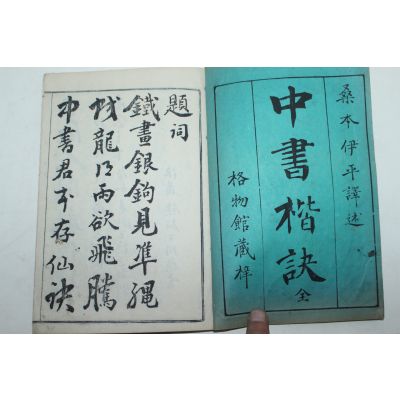 桑本伊平譯述
中書楷訣 全
格物館藏梓
題詞
鐵畫銀鉤見準繩
龍得雨欲飛騰
中書君家存仙訣